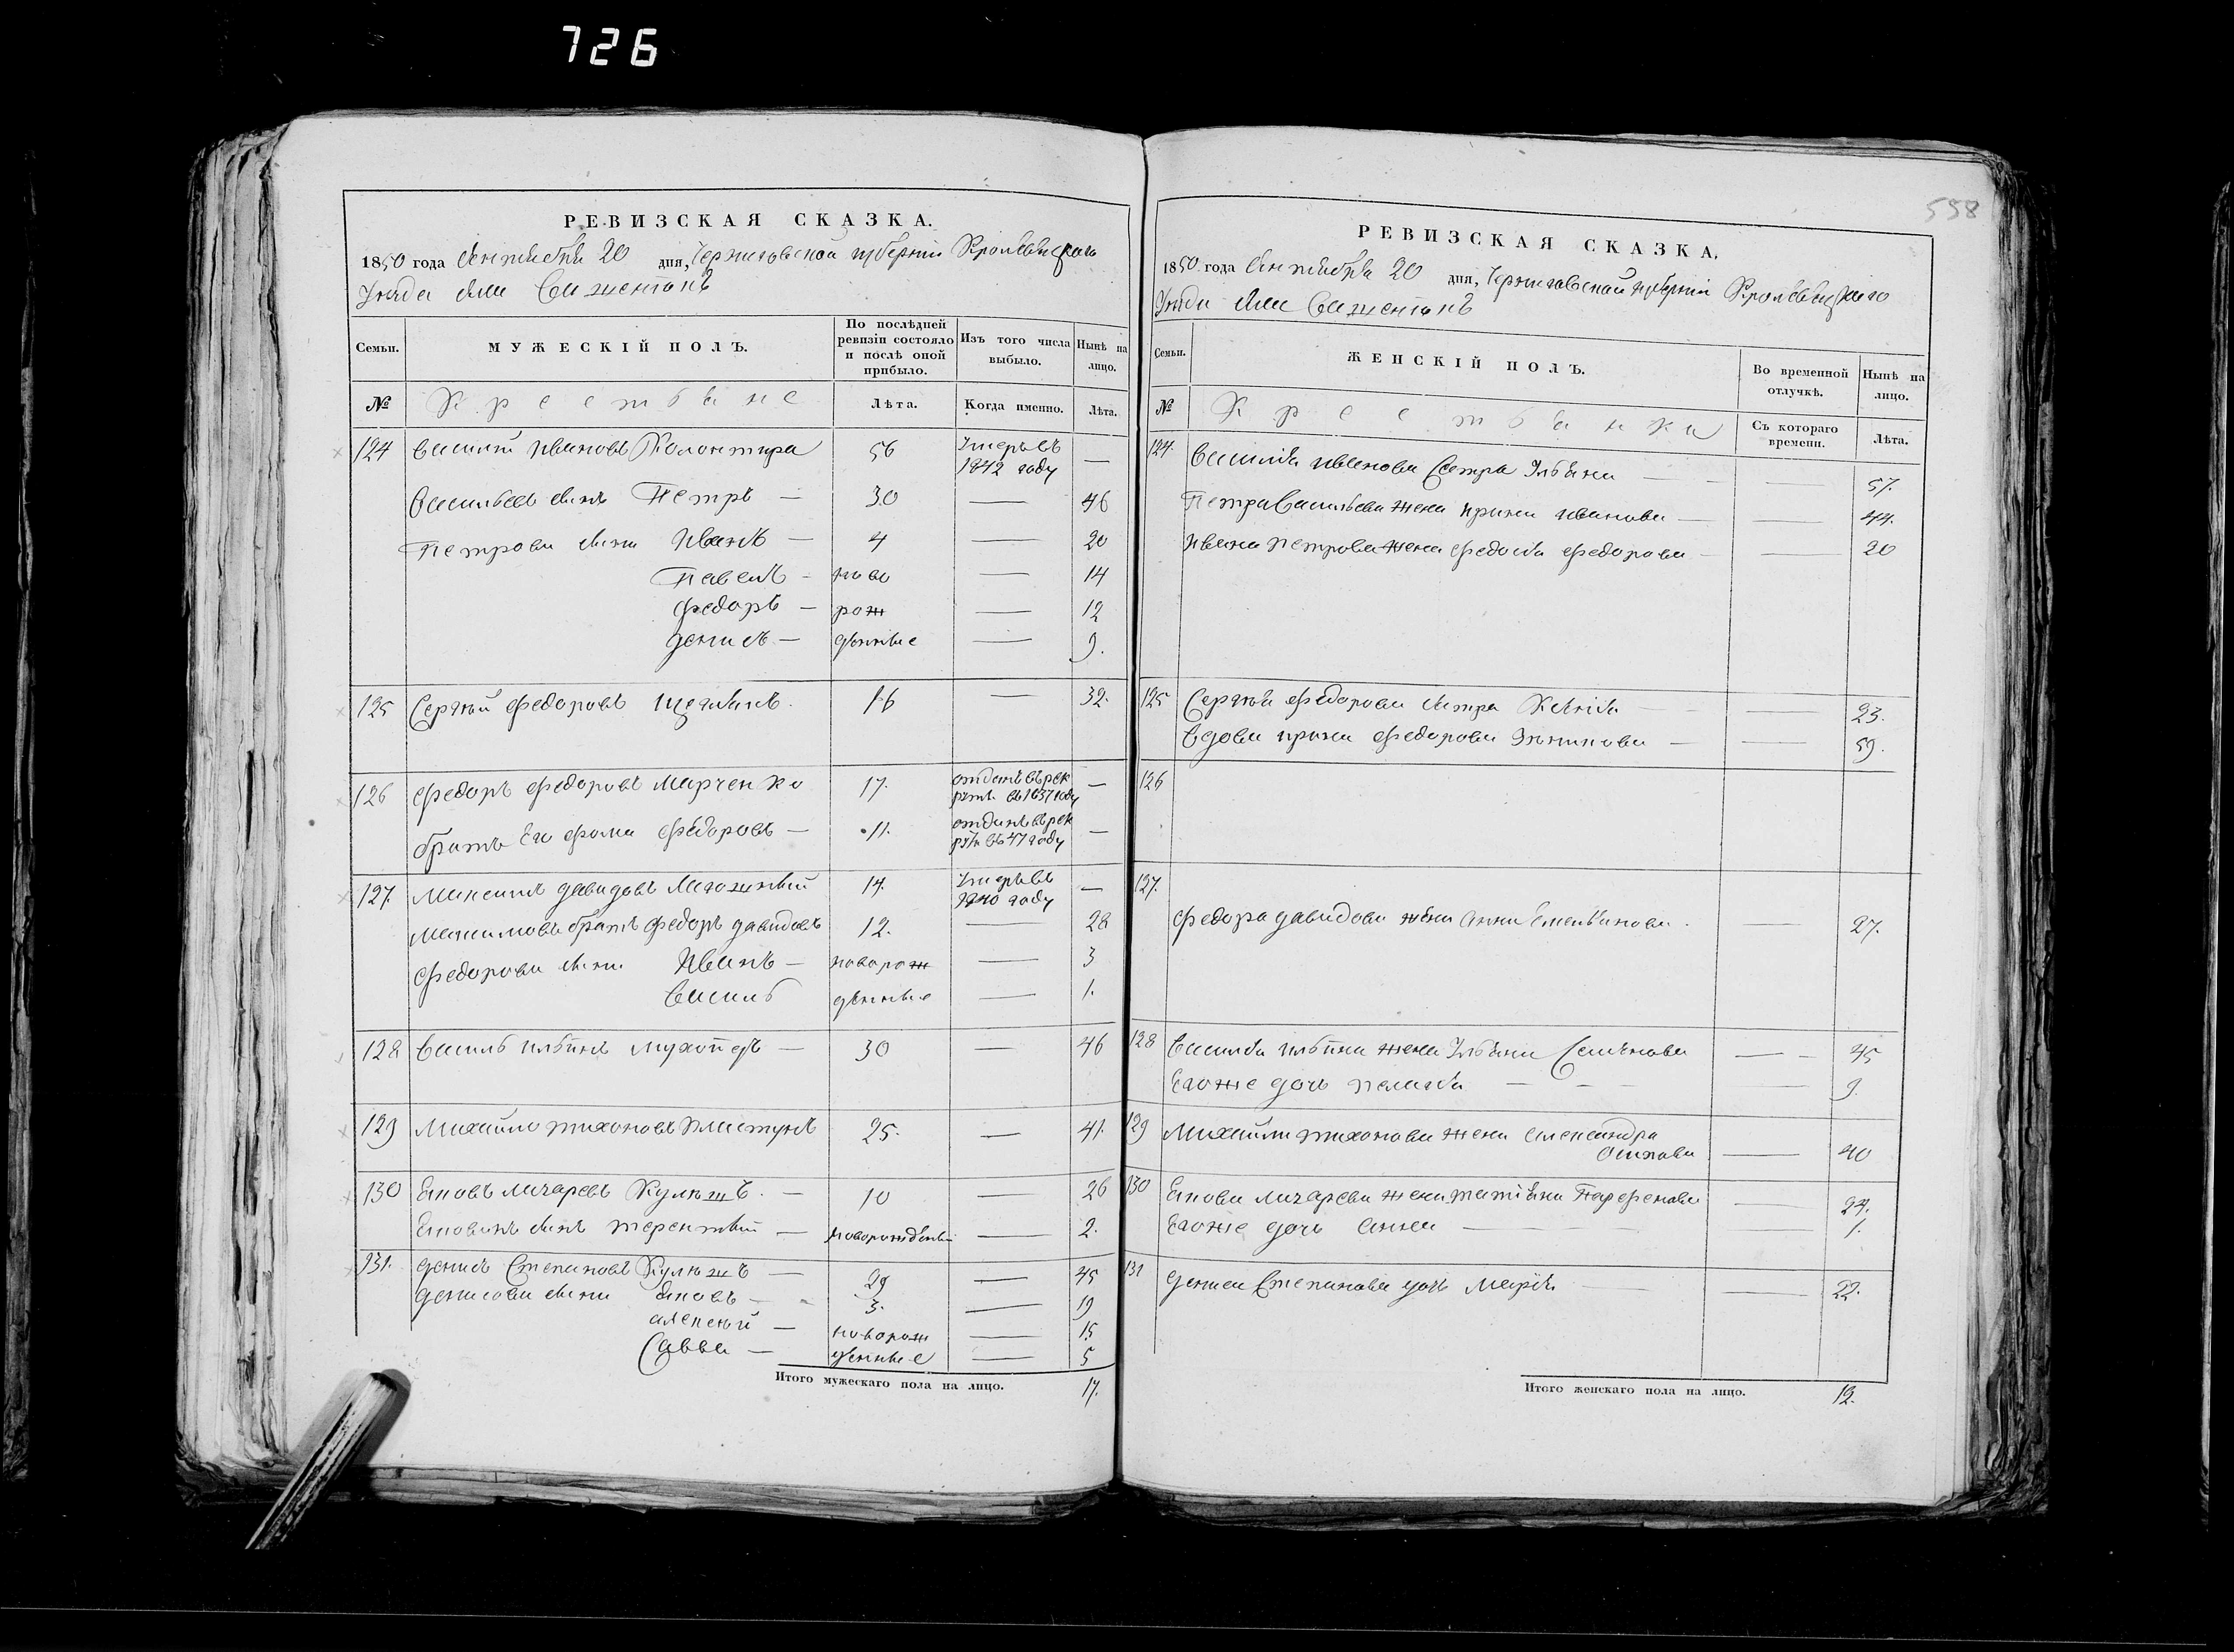 726
598
РЕВИЗСКАЯ СКАЗКА.
1850 года Сентября 20 дня, Черниговской губерніи Кролевецкаго
Уезда
Семьи.
МУЖЕСКІЙ ПОЛЪ.
По послѣдней ревизіи состояло и послѣ оной прибыло.
Изъ того числа выбыло.
Нынѣ на лицо.
№
Крестьяне
Лѣта.
Когда именно.
Лѣта.
124 Василий Ивановъ 56 Умеръ въ 1842 году —
Васильевъ сынъ Петръ — 30 — 46
Петрова сыны Иванъ — 4 — 20
Павелъ — ново — 14
Федоръ — рож — 12
Денисъ — денные — 9.
125 Сергѣй Федоровъ 16 — 32.
126 Федоръ Федоровъ Марченко 17. отданъ въ рек рути въ 1837 году —
братъ Его Фома Федоровъ — 11. отданъ въ рек рути въ 47 году —
127. Максимъ Давидовъ 14. Умеръ въ 1840 году —
Максимовъ братъ Федоръ Давидовъ 12. — 28
Федорова сыны Иванъ — новорож — 3
Василь денные — 1.
128 Василь Ильинъ — 30 — 46
129 Михайло Тихоновъ Пластунъ 25. — 41.
130 Яковъ Макаревъ Кулюжъ. — 10 — 26
Яковинъ сынъ Терентий — новорожденый — 2.
131. Денисъ Степановъ Кулюжъ — 29 — 45
Денисова сыны Яковъ — 3. — 19
Алексѣй — новорож — 15
Савва — денные — 5
Итого мужескаго пола на лицо. 17.
РЕВИЗСКАЯ СКАЗКА.
1850 года Сентября 20 дня, Черниговской губерніи Кролевецкаго
Уезда
Семьи.
ЖЕНСКІЙ ПОЛЪ.
Во временной отлучкѣ.
Нынѣ на лицо.
№
Крестьянки
Съ котораго времени.
Лѣта.
124. Василія Иванова Сестра Ульяна — — 57.
Петра Васильева жена Ирина Иванова — — 44.
Ивана Петрова жена Федосія Федорова — — 20
125 Сергѣя Федорова сестра Ксенія — — 23.
Вдова Ирина Федорова — — 59.
126
127.
Федора Давидова жена Анна Емельянова. — 27.
128 Василія Ильина жена Ульяна Семенова — 45
Егоже дочь Пелагія — — 9.
129 Михайли Тихонова жена Александра
Осипова — 40
130 Якова Макарева жена Татіяна Парфенова — 24.
Егоже дочь Анна — — 1.
131 Дениса Степанова дочь Марія — — 22.
Итого женскаго пола на лицо. 12.